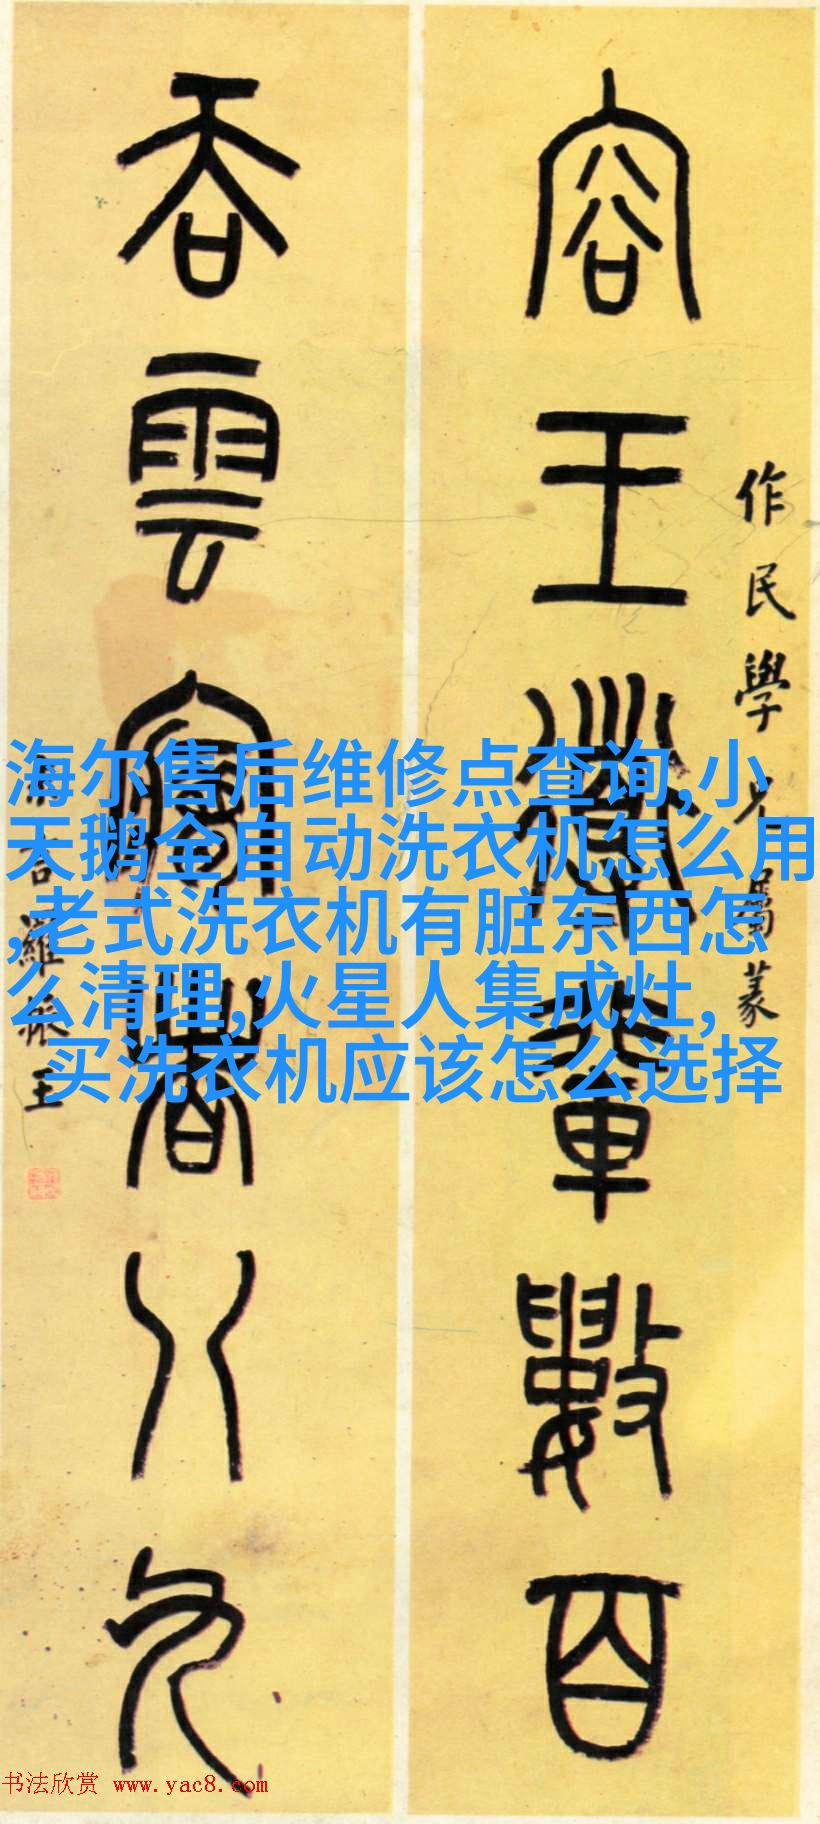 容王導輩數百
吞雲夢者八九
作民學兄屬篆
羅振玉
海尔售后维修点查询,小
天鹅全自动洗衣机怎么用
,老式洗衣机有脏东西怎
么清理,火星人集成灶,
买洗衣机应该怎么选择
书法欣赏 www.yac8.com